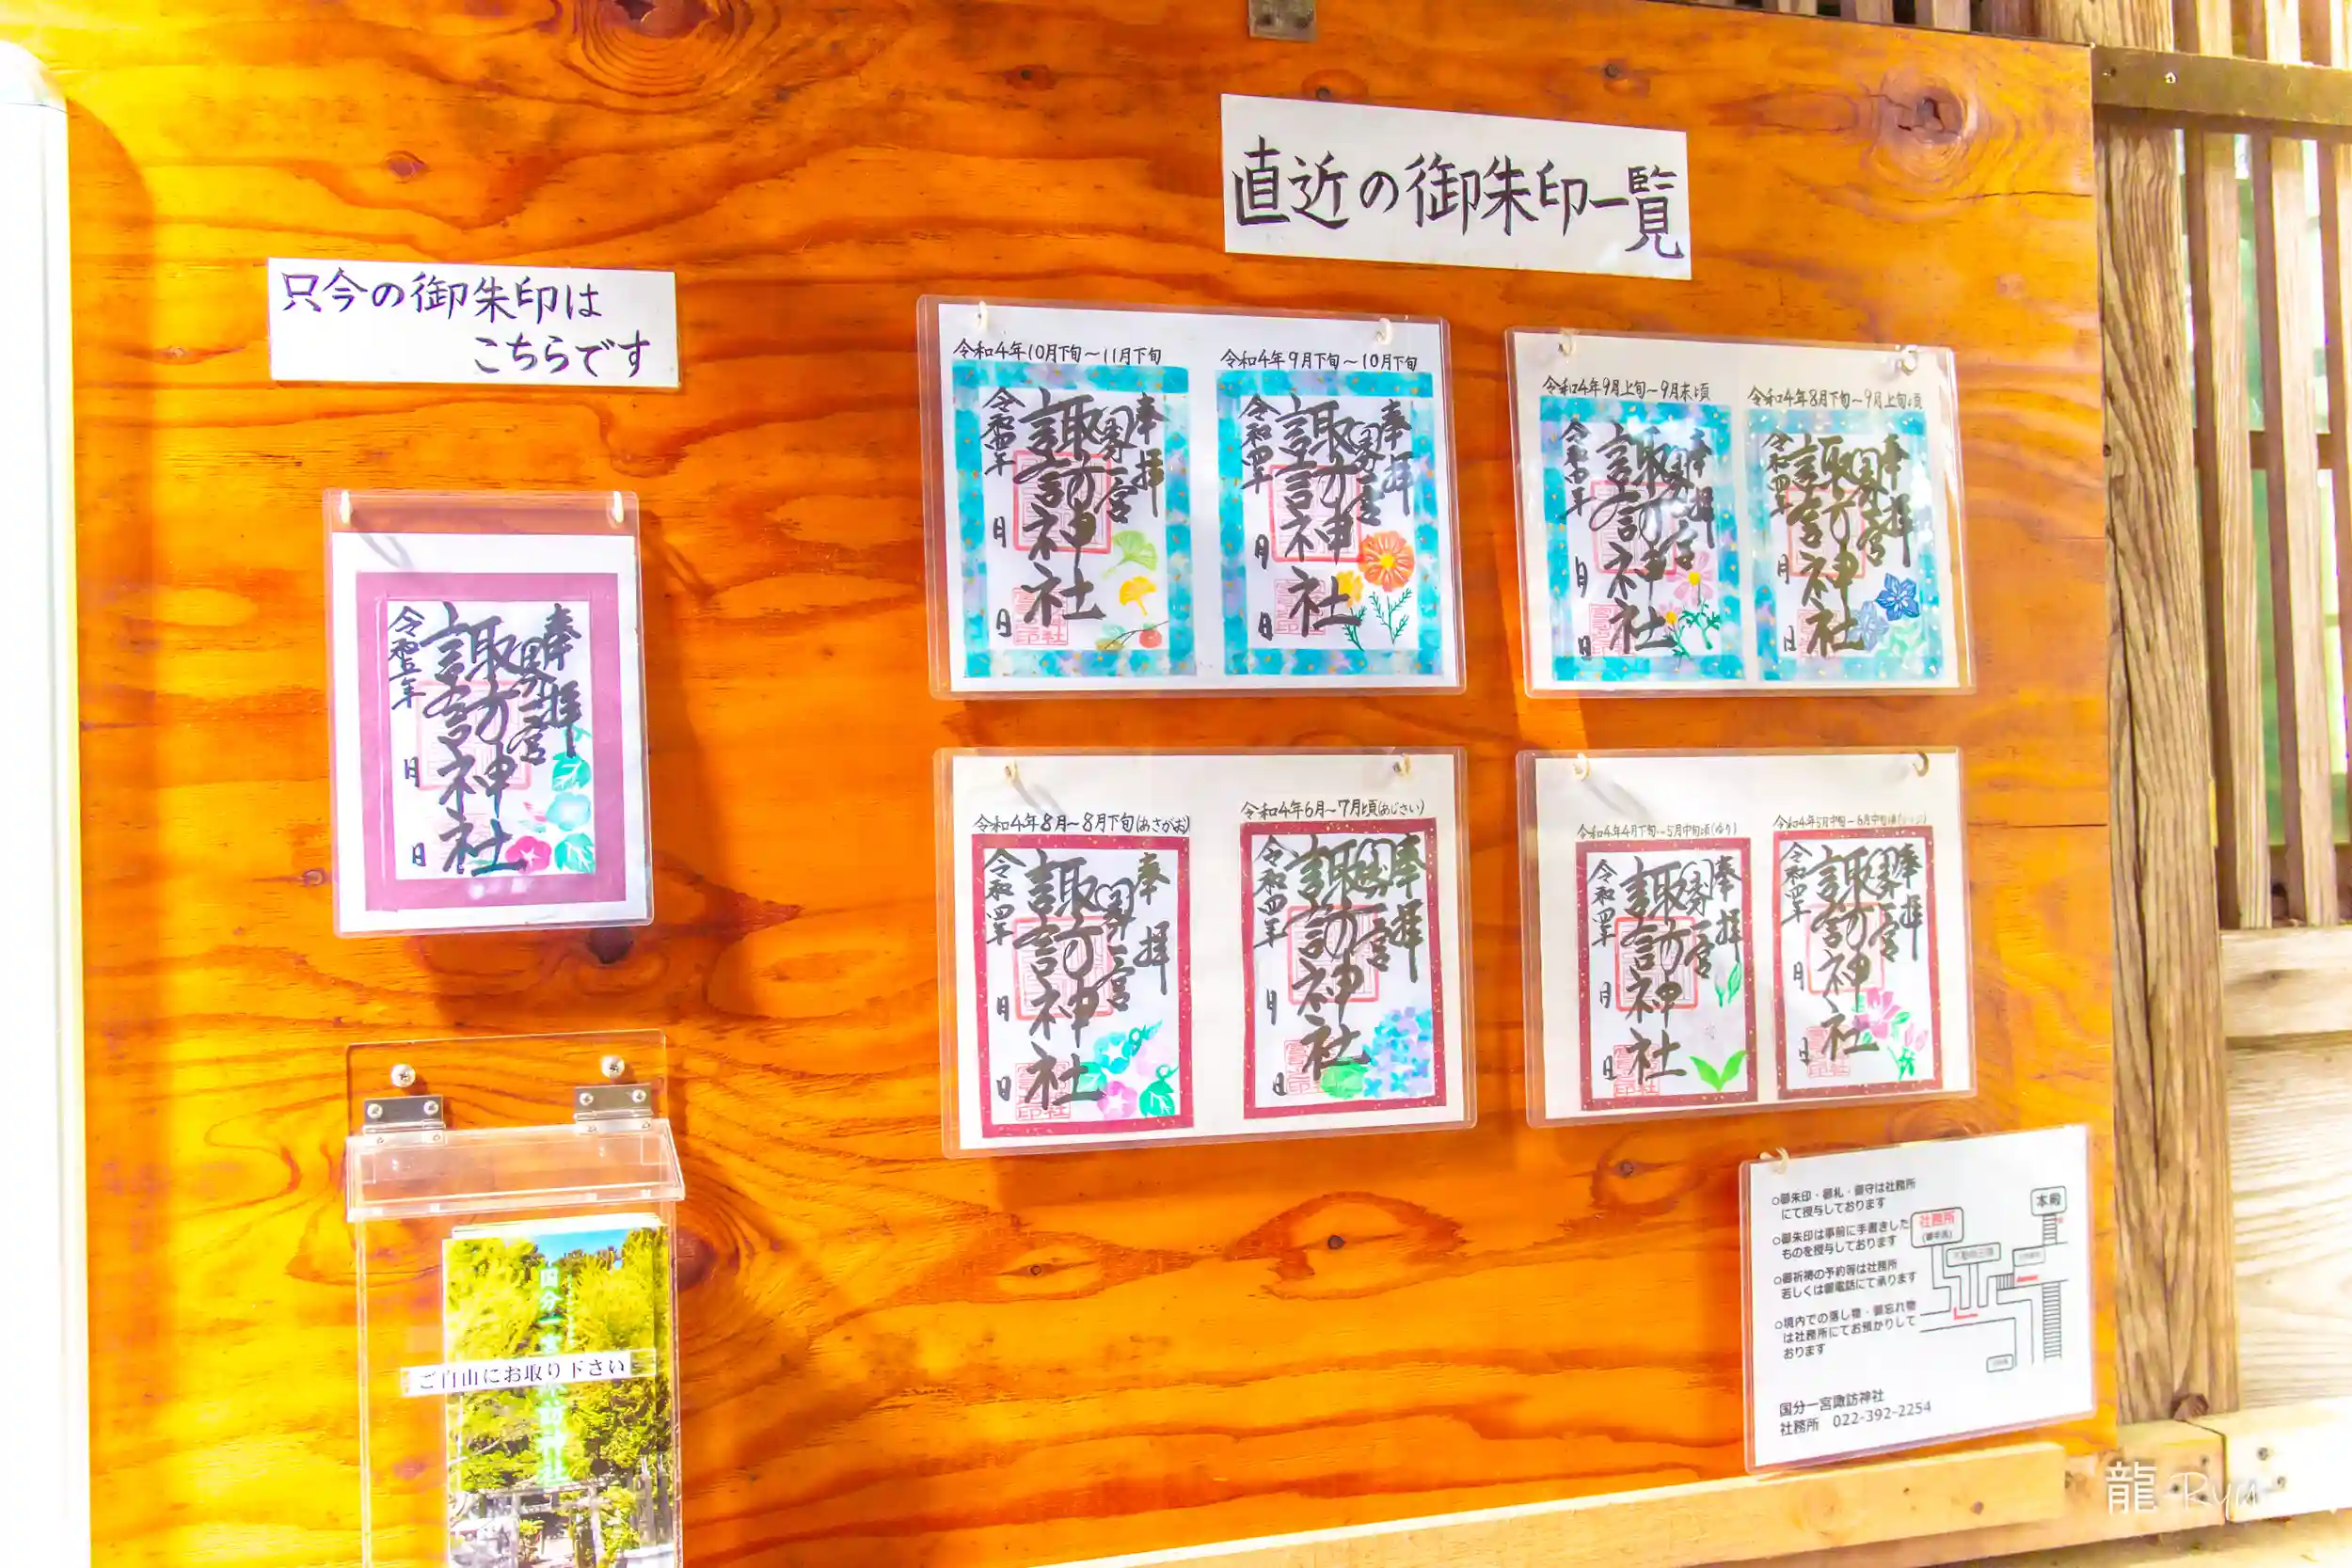 直近の御朱印一覧
只今の御朱印は
こちらです
令和五年
月
日
奉拝
國分一宮
諏訪神社
令和4年10月下旬～11月下旬
令和四年
月
日
奉拝
國分一宮
諏訪神社
令和4年9月下旬～10月下旬
令和四年
月
日
奉拝
國分一宮
諏訪神社
令和4年9月上旬～9月末頃
令和四年
月
日
奉拝
諏訪神社
令和4年8月下旬～9月上旬頃
令和四年
月
日
奉拝
國分一宮
諏訪神社
令和4年8月～8月下旬(あさがお)
令和四年
月
日
奉拝
國分一宮
諏訪神社
令和4年6月～7月頃(あじさい)
令和四年
月
日
奉拝
國分一宮
諏訪神社
令和4年4月下旬～5月中旬頃(ゆり)
令和四年
月
日
奉拝
國分一宮
諏訪神社
令和4年5月中旬～6月中旬頃
令和四年
月
日
奉拝
國分一宮
諏訪神社
ご自由にお取り下さい
国分一宮
諏訪神社
○御朱印・御札・御守は社務所
にて授与しております
○御朱印は事前に手書きした
ものを授与しております
○御祈祷の予約等は社務所
若しくは御電話にて承ります
○境内での落し物・御忘れ物
は社務所にてお預かりして
おります
社務所
本殿
国分一宮諏訪神社
社務所 022-392-2254
龍 Ryu